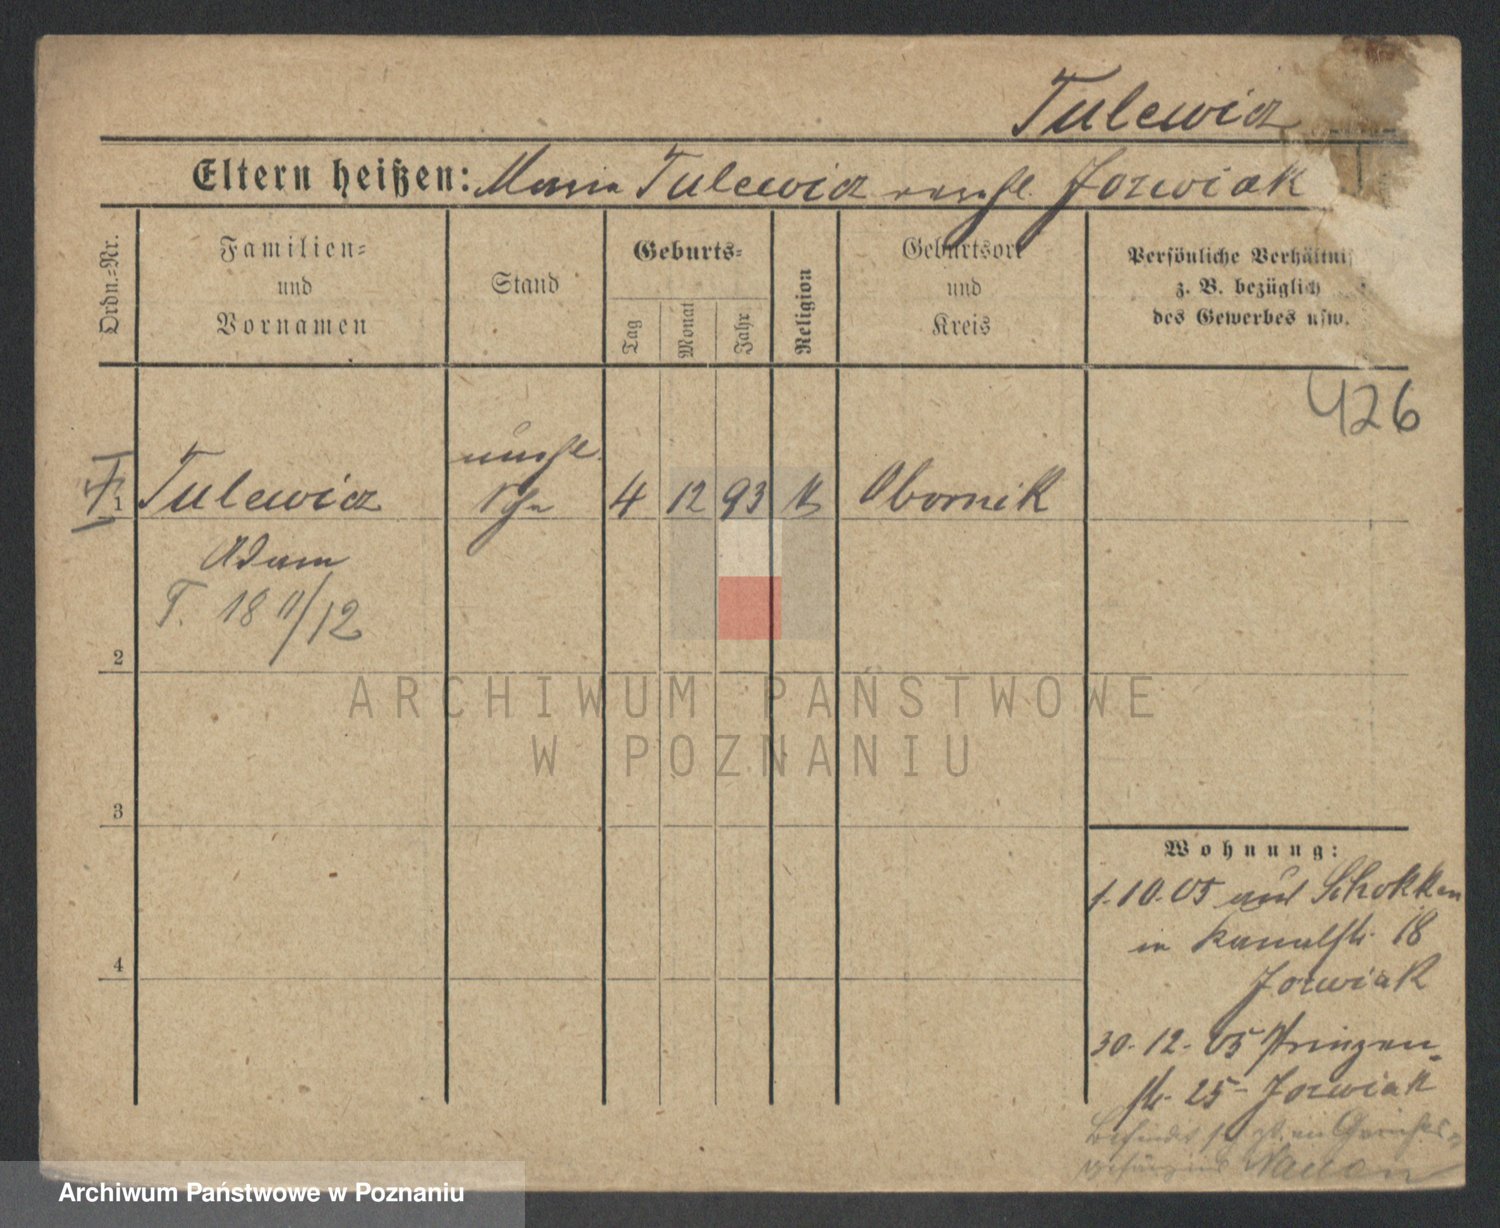 Tulewicz
Eltern heißen: Maria Tulewicz verehl. Jozwiak
Ordn.=Nr.
Familien=
und
Vornamen
Stand
Geburts=
Tag
Monat
Jahr
Religion
Geburtsort
und
Kreis
Persönliche Verhältnis
z. B. bezüglich
des Gewerbes usw.
426
1 Tulewicz
unehl.
4 12 93 k Obornik
Adam
T. 18 11/12
2
3
4
Wohnung:
1.10.05 aus Schokken
in Kanalstr. 18
Jozwiak
30.12.05 Prinzen-
str. 25 Jozwiak
Befindet sich im Gerichts-
gefängnis
ARCHIWUM PAŃSTWOWE
W POZNANIU
Archiwum Państwowe w Poznaniu